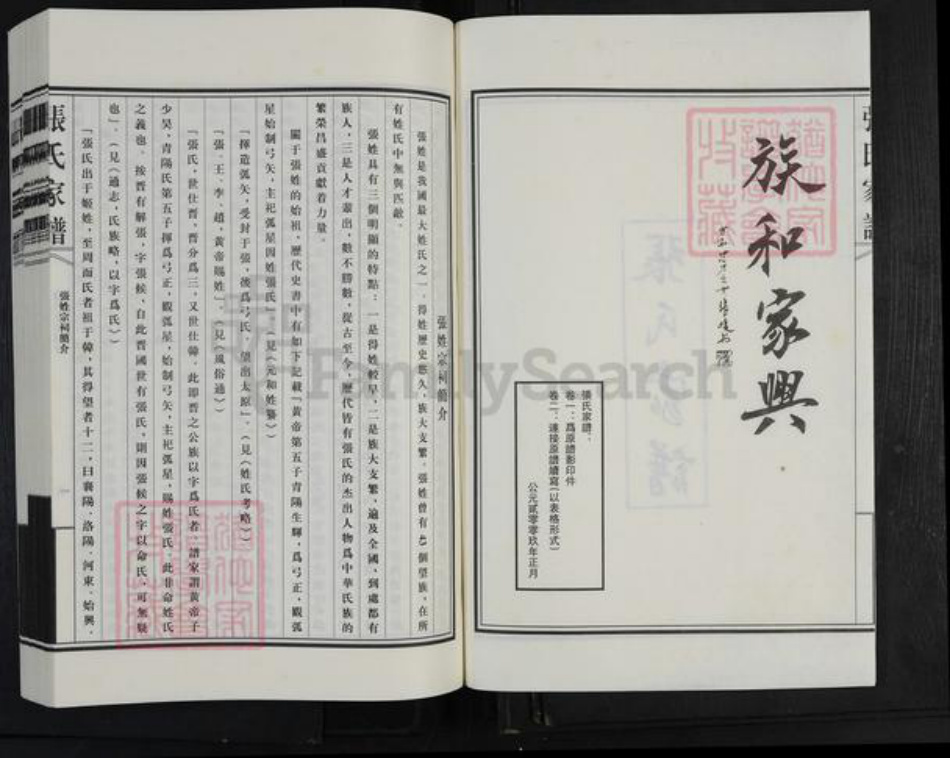 族和家興
張氏家譜：
卷一：爲原譜影印件
卷二：連接原譜續寫(以表格形式)
公元貳零零玖年正月
張姓宗祠簡介
張姓是我國最大姓氏之一。得姓歷史悠久，族大支繁。張姓曾有 43 個望族，在所
有姓氏中無與匹敵。
張姓具有三個明顯的特點：一是得姓較早，二是族大支繁，遍及全國，到處都有
族人，三是人才輩出，數不勝數，從古至今，歷代皆有張氏的杰出人物爲中華民族的
繁榮昌盛貢獻着力量。
關于張姓的始祖，歷代史書中有如下記載「黃帝第五子青陽生輝，爲弓正，觀弧
星始制弓矢，主祀弧星因姓張氏」。(見《元和姓纂》)
「揮造弧矢，受封于張，後爲弓氏，望出太原」。(見《姓氏考略》)
「張、王、李、趙，黃帝賜姓」。(見《風俗通》)
「張氏，世仕晋，晋分爲三，又世仕韓。此即晋之公族以字爲氏者。譜家謂黃帝子
少昊，青陽氏第五子揮爲弓正，觀弧星，始制弓矢，主祀弧星，賜姓張氏。此非命姓氏
之義也。按晋有解張，字張候，自此晋國世有張氏，則因張候之字以命氏，可無疑
也」。(見《通志，氏族略，以字爲氏》)
「張氏出于姬姓，至周而氏者祖于韓，其得望者十二，曰襄陽、洛陽、河東、始興、
張氏家譜
張姓宗祠簡介
一
張氏家譜
FamilySearch